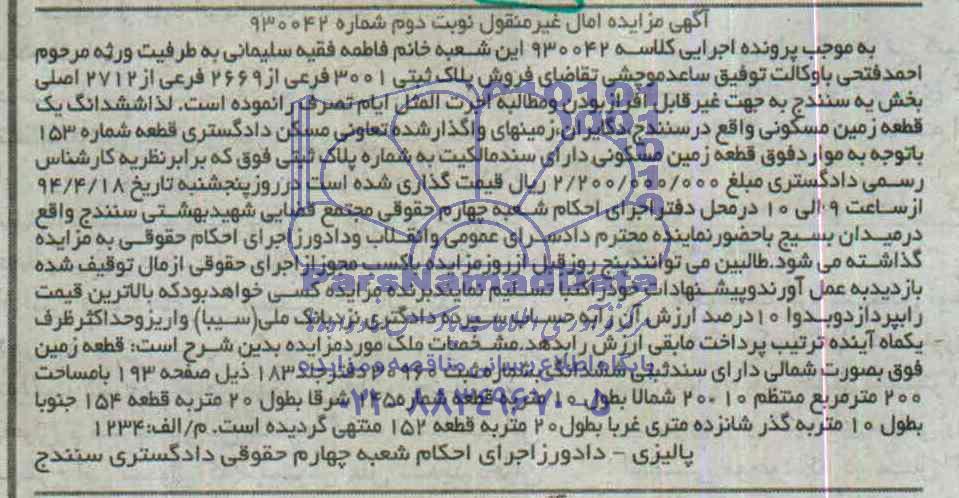 آگهی مزایده اموال غیرمنقول نوبت دوم شماره ۹۳۰۰۴۲
به موجب پرونده اجرایی کلاسه ۹۳۰۰۴۲ این شعبه خانم فاطمه فقیه سلیمانی به طرفیت ورثه مرحوم
احمدفتحی باوکالت توفیق ساعدموچشی تقاضای فروش پلاک ثبتی ۳۰۰۱ فرعی از ۲۶۶۹ فرعی از ۲۷۱۲ اصلی
بخش یه سنندج به جهت غیر قابل افراز بودن ومطالبه اجرت المثل ایام تصرف رانموده است. لذاششدانگ یک
قطعه زمین مسکونی واقع در سنندج،دگایران،زمینهای واگذارشده تعاونی مسکن دادگستری قطعه شماره ۱۵۳
باتوجه به مواردفوق قطعه زمین مسکونی دارای سندمالکیت به شماره پلاک ثبتی فوق که برابرنظریه کارشناس
رسمی دادگستری مبلغ ۲/۲۰۰/۰۰۰/۰۰۰ ریال قیمت گذاری شده است درروزپنجشنبه تاریخ ۹۴/۴/۱۸
ازساعت ۹ الی ۱۰ درمحل دفتراجرای احکام شعبه چهارم حقوقی مجتمع قضایی شهیدبهشتی سنندج واقع
درمیدان بسیج باحضورنماینده محترم دادسرای عمومی وانقلاب ودادورزاجرای احکام حقوقی به مزایده
گذاشته می شود.طالبین می توانندپنج روزقبل ازروزمزایده باکسب مجوزازاجرای حقوقی ازمال توقیف شده
بازدیدبه عمل آورندوپیشنهادات خودراکتبا تسلیم نمایندبرنده مزایده کسی خواهدبودکه بالاترین قیمت
رابپردازدوبدوا ۱۰درصد ارزش آن رابه حساب سپرده دادگتری نزدبانک ملی(سیبا) واریزوحداکثرظرف
یکماه آینده ترتیب پرداخت مابقی ارزش رابدهد.مشخصات ملک موردمزایده بدین شرح است: قطعه زمین
فوق بصورت شمالی دارای سندثبتی ششدانگ بشماره ثبت دفترجلد۱۸۳ ذیل صفحه ۱۹۳ بامساحت
۲۰۰ مترمربع منتظم ۱۰*۲۰ شمالا بطول ۱۰ متربه قطعه شماره۱۴۵ شرقا بطول ۲۰ متربه قطعه ۱۵۴ جنوبا
بطول ۱۰ متربه گذر شانزده متری غربا بطول۲۰ متربه قطعه ۱۵۲ منتهی گردیده است. م/الف:۱۲۳۴
پالیزی - دادورزاجرای احکام شعبه چهارم حقوقی دادگستری سنندج
ParsNamadData
پایگاه اطلاع رسانی مناقصه و مزایده
۰۲۱-۸۸۳۴۹۶۷۰-۵